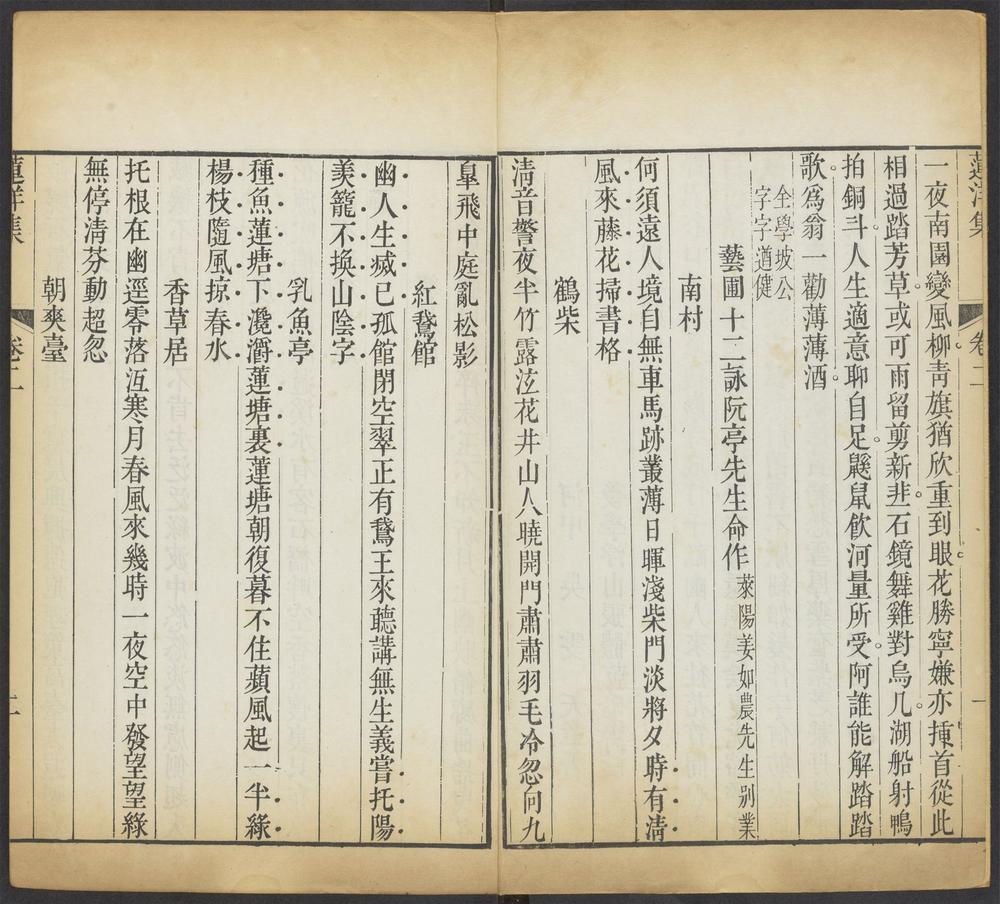 蓮洋集
卷二
一
一夜南園變風柳靑旗猶欣重到眼花勝寧嫌亦揰首從此
相過踏芳草或可雨留剪新韭石鏡舞雞對烏几湖船射鴨
拍銅斗人生適意聊自足鼷鼠飮河量所受阿誰能解踏踏
歌爲翁一勸薄薄酒
全學坡公
字字遒健
藝圃十二詠阮亭先生命作萊陽姜如農先生別業
南村
何須遠人境自無車馬跡叢薄日暉淺柴門淡將夕時有淸
風來藤花掃書格
鶴柴
淸音警夜半竹露泫花井山人曉開門肅肅羽毛冷忽向九
臯飛中庭亂松影
紅鵞館
幽人生滅已孤館閉空翠正有鵞王來聽講無生義嘗托陽
羨籠不換山陰字
乳魚亭
種魚蓮塘下瀺灂蓮塘裏蓮塘朝復暮不住蘋風起一半綠
楊枝隨風掠春水
香草居
托根在幽逕零落沍寒月春風來幾時一夜空中發望望綠
無停淸芬動超忽
朝爽臺
蓮洋集
卷二
二